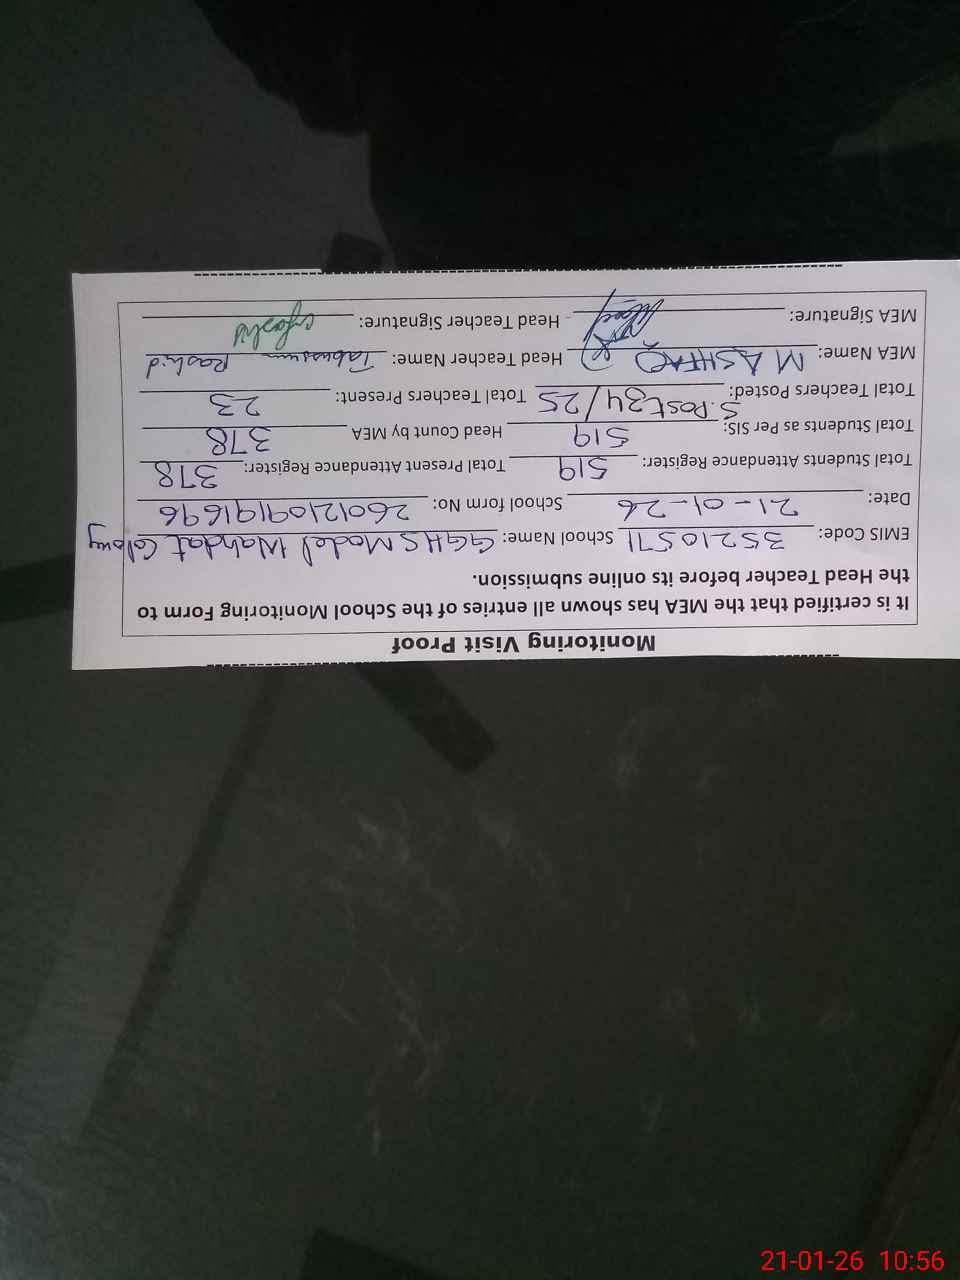 Monitoring Visit Proof
It is certified that the MEA has shown all entries of the School Monitoring Form to
the Head Teacher before its online submission.
EMIS Code: 35210571 School Name: GGHS Model Wahdat Colony
Date: 21-01-26 School form No: 26012109191696
Total Students Attendance Register: 519 Total Present Attendance Register: 378
Total Students as Per SIS: 519 Head Count by MEA 378
Total Teachers Posted: S.Post 34/25 Total Teachers Present: 23
MEA Name: M ASHFAQ Head Teacher Name: Tabussum Rashid
MEA Signature: Head Teacher Signature:
21-01-26 10:56